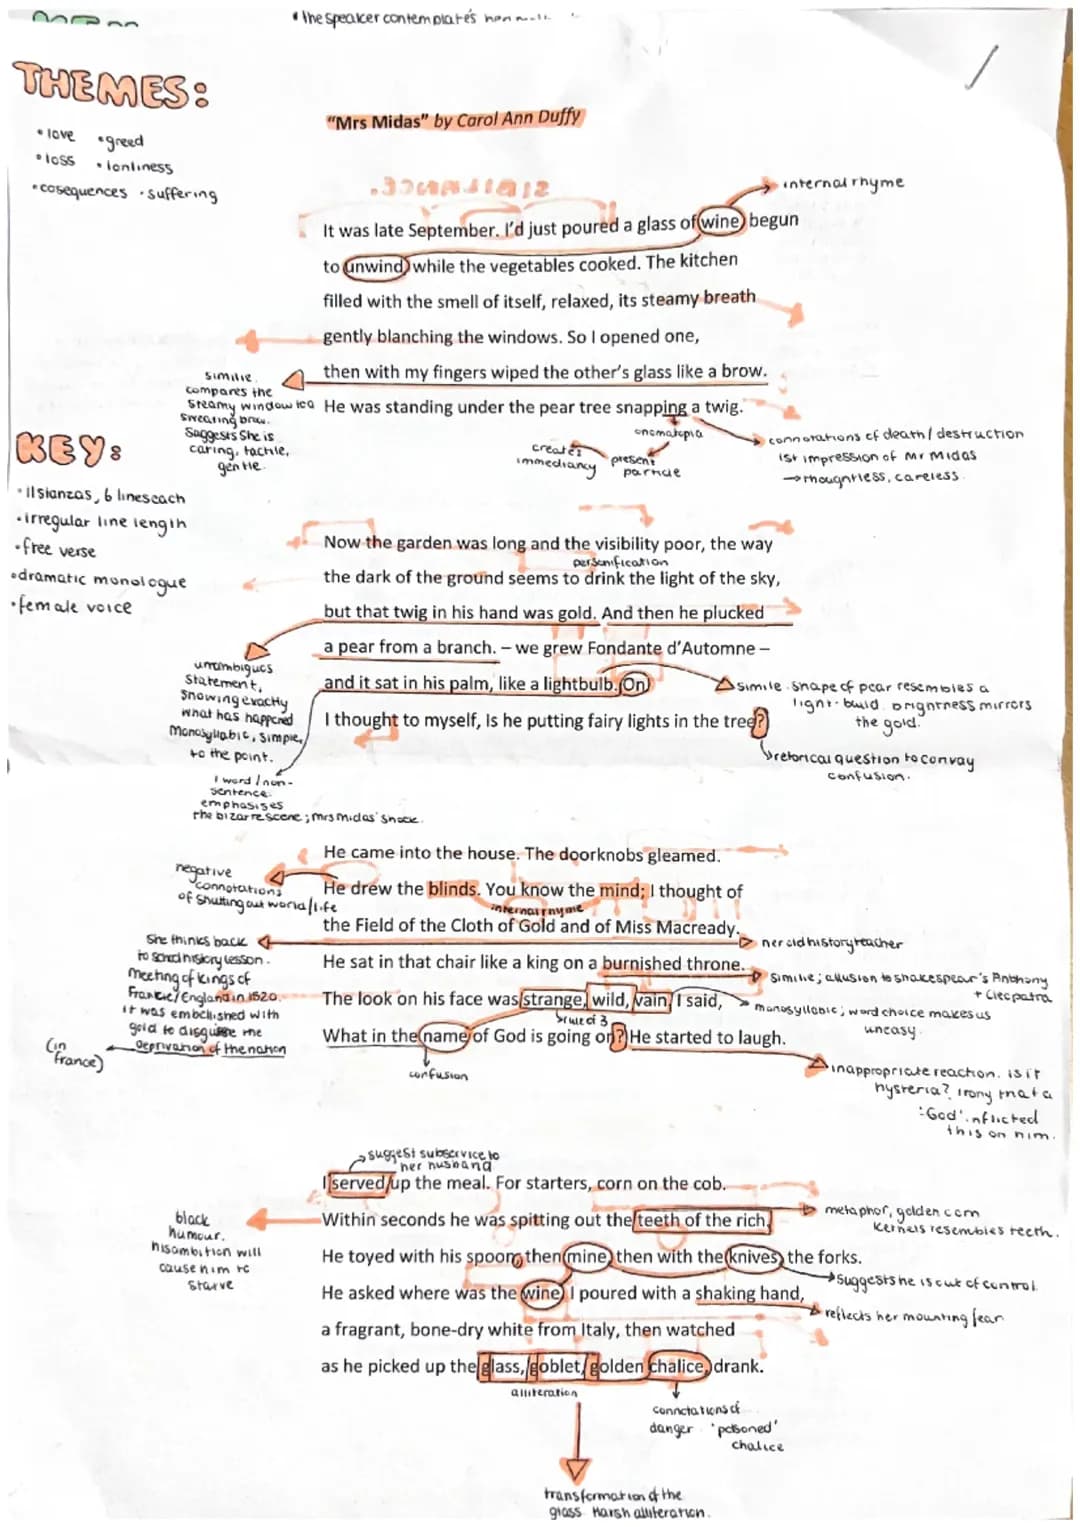 • The speaker contemplates her
THEMES:
• love • greed
• loss • lonliness
• cosequences • suffering
"Mrs Midas" by Carol Ann Duffy
internal rhyme
It was late September. I'd just poured a glass of wine, begun
to unwind, while the vegetables cooked. The kitchen
filled with the smell of itself, relaxed, its steamy breath
gently blanching the windows. So I opened one,
then with my fingers wiped the other's glass like a brow.
He was standing under the pear tree snapping a twig.
similie.
compares the
steamy window to a
sweating brow.
Suggests she is
caring, tactile,
gentle.
onomatopia
creates
immediancy
present
particle
connotations of death/destruction
1st impression of Mr Midas
→ thoughtless, careless.
KEY:
• 11 stanzas, 6 lines each
• irregular line length
• free verse
• dramatic monologue
• female voice
Now the garden was long and the visibility poor, the way
personification
the dark of the ground seems to drink the light of the sky,
but that twig in his hand was gold. And then he plucked
a pear from a branch. – we grew Fondante d'Automne –
and it sat in his palm, like a lightbulb. On
I thought to myself, Is he putting fairy lights in the tree?
unambigucs
statement,
showing exactly
what has happened
Monosyllabic, simple,
to the point.
1 word/non-
sentence.
emphasises
the bizarre scene; mrs midas' shock.
simile. shape of pear resembles a
light-buld. brightness mirrors
the gold.
retorical question to convay
confusion.
He came into the house. The doorknobs gleamed.
He drew the blinds. You know the mind; I thought of
internal rhyme
the Field of the Cloth of Gold and of Miss Macready.
He sat in that chair like a king on a burnished throne.
The look on his face was strange, wild, vain, I said,
rule of 3
What in the name of God is going on? He started to laugh.
confusion
negative
connotations
of shutting out world/life
She thinks back
to school history lesson.
meeting of kings of
France/England in 1520.
it was embellished with
gold to disguise the
deprivation of the nation
(in
france)
her old history teacher
similie; allusion to shakespear's Anthony
+ Cleopatra
monosyllabic; word choice makes us
uneasy.
inappropriate reaction. is it
hysteria? irony that a
'God' inflicted
this on him.
suggest subservice to
her husband
I served up the meal. For starters, corn on the cob.
Within seconds he was spitting out the teeth of the rich.
He toyed with his spoon, then mine, then with the knives, the forks.
He asked where was the wine. I poured with a shaking hand,
a fragrant, bone-dry white from Italy, then watched
as he picked up the glass, goblet, golden chalice, drank.
black
humour.
his ambition will
cause him to
starve
metaphor, golden corn
kernels resembles teeth.
suggests he is out of control.
reflects her mounting fear
alliteration
connotations of
danger 'poisoned'
chalice
transformation of the
glass. Harsh alliteration.